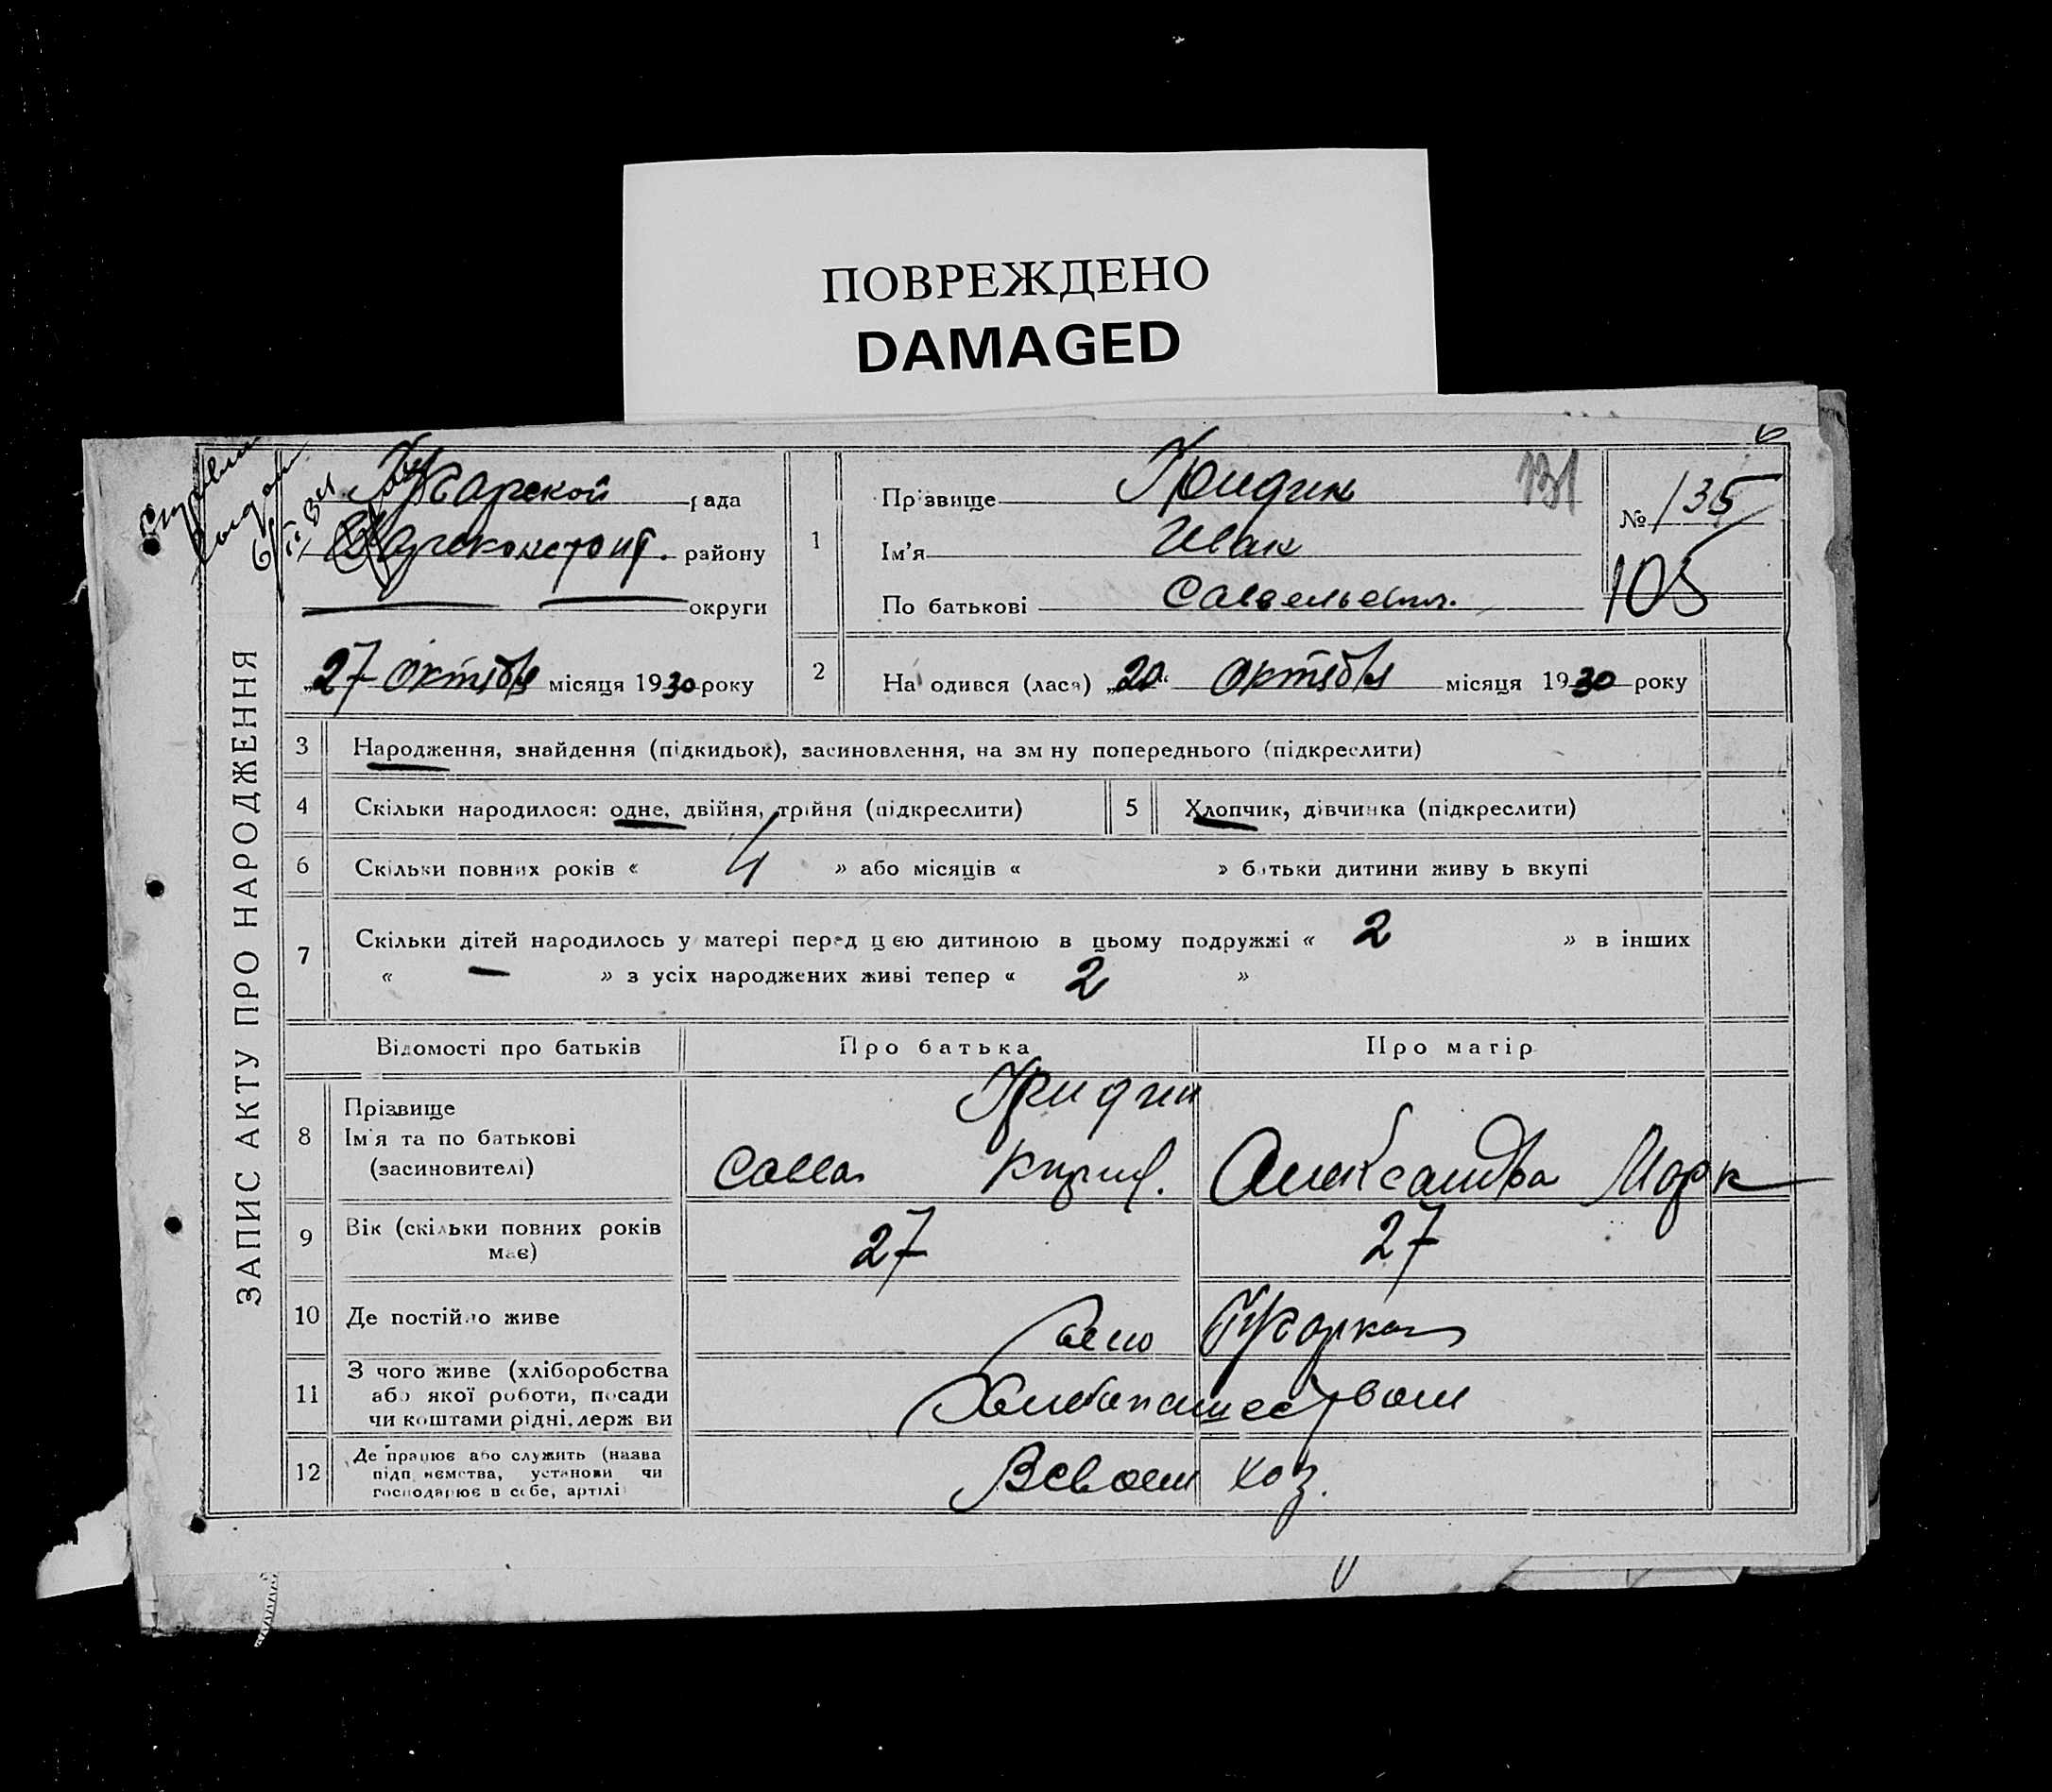 ПОВРЕЖДЕНО
DAMAGED
ЗАПИС АКТУ ПРО НАРОДЖЕННЯ
рада
району
округи
"27" октября місяця 1930 року
1
Прізвище Гридин 131
Ім'я Иван
По батькові Савельевич.
№ 135
105
2 Народився (лася) "20" октября місяця 1930 року
3 Народження, знайдення (підкидьок), засиновлення, на зміну попереднього (підкреслити)
4 Скільки народилося: одне, двійня, трійня (підкреслити) 5 Хлопчик, дівчинка (підкреслити)
6 Скільки повних років « 4 » або місяців « » батьки дитини живуть вкупі
7 Скільки дітей народилось у матері перед цією дитиною в цьому подружжі « 2 » в інших
« — » з усіх народжених живі тепер « 2 »
Відомості про батьків Про батька Про матір
8 Прізвище
Ім'я та по батькові
(засиновителі)
Гридин
Савва Кирил. Александра Марк
9 Вік (скільки повних років
має) 27 27
10 Де постійно живе село
11 З чого живе (хліборобства
або якої роботи, посади
чи коштами рідні, держави
Хлебопашеством
12 Де працює або служить (назва
підприємства, установи чи
господарює в себе, артілі
В своем хоз.